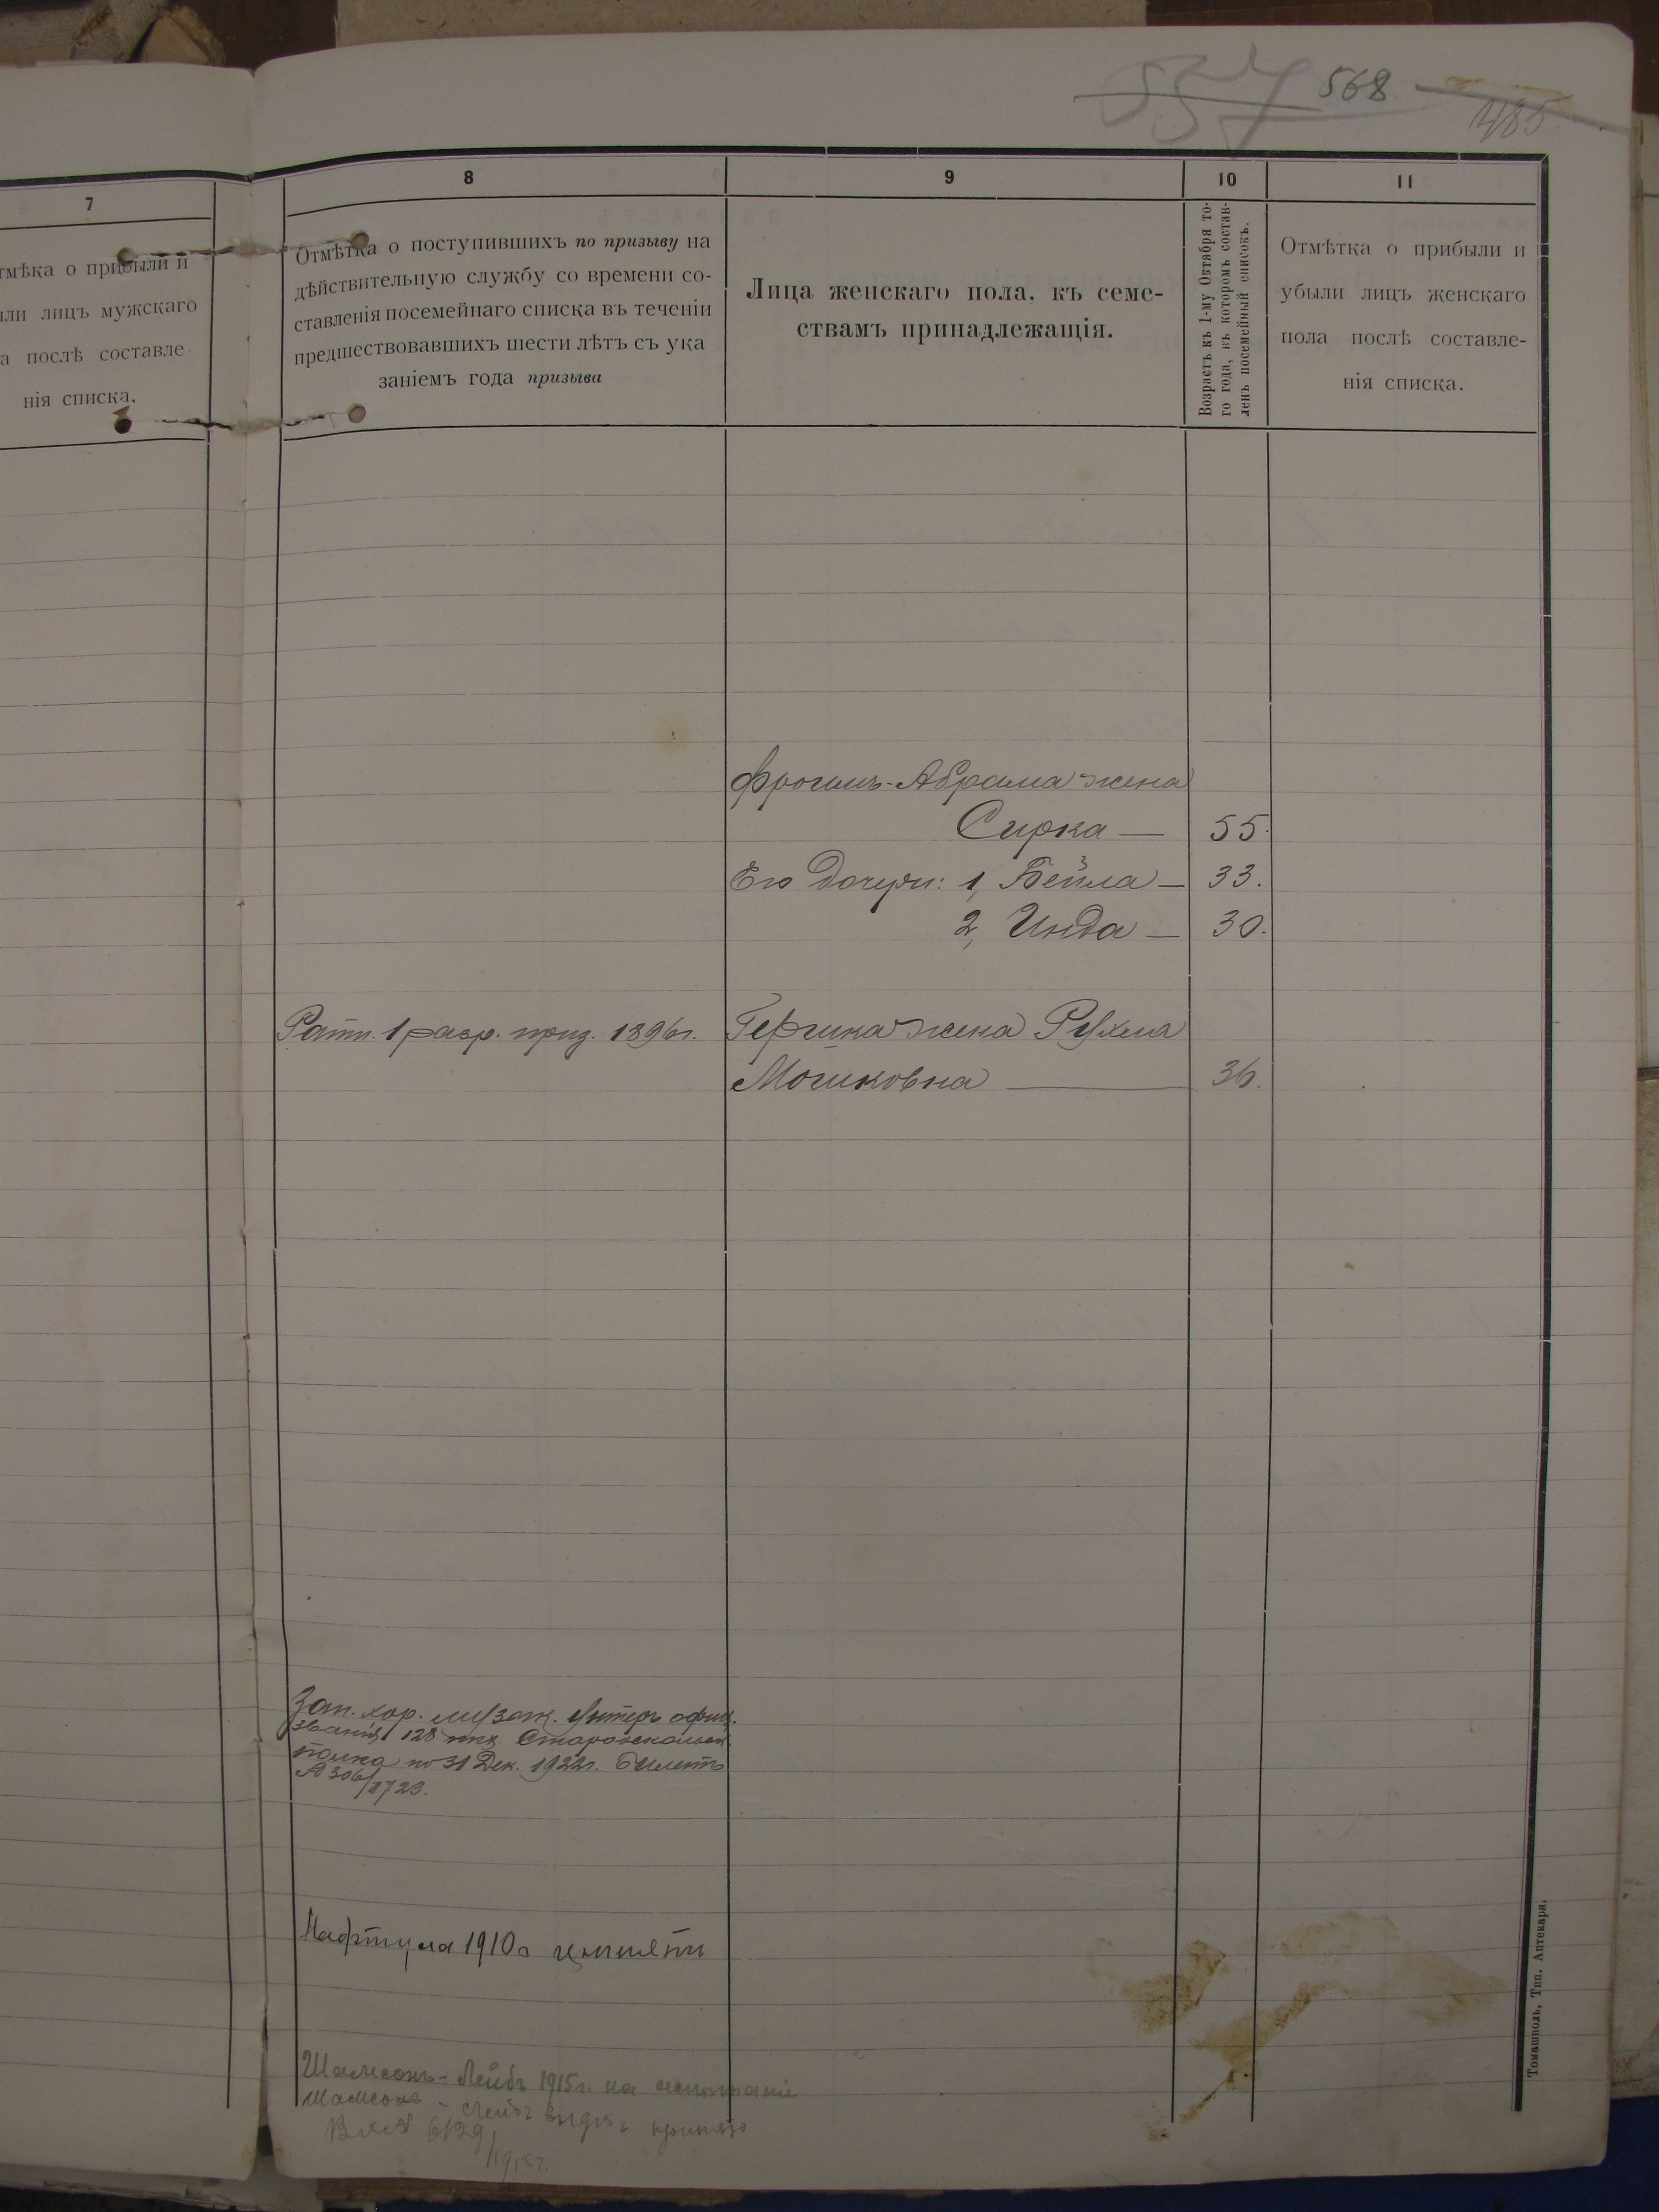 557 568
485
7
8
9
10
11
тмѣка о прибыли и
ыли лицъ мужскаго
а послѣ составле-
нія списка.
Отмѣтка о поступившихъ по призыву на
дѣйствительную службу со времени со-
ставленія посемейнаго списка въ теченіи
предшествовавшихъ шести лѣтъ съ ука
заніемъ года призыва
Лица женскаго пола, къ семе-
ствамъ принадлежащія.
Возрастъ къ 1-му Октября то-
го года, въ которомъ состав-
ленъ посемейный списокъ.
Отмѣтка о прибыли и
убыли лицъ женскаго
пола послѣ составле-
нія списка.
Фроимъ-Абрама жена
Сирка — 55.
Его дочери: 1, Бейла — 33.
2, Инда — 30.
Ратн. 1 разр. приз. 1896 г. Гершка жена Рухля
Мошковна — 36.
Зап. хор. музык. Унтеръ офиц.
званія 128 пѣх. Старооскольск.
полка по 31 Дек. 1922г. билетъ
№ 306/1723.
Нафтула 1910 г
Шамсонъ-Лейбъ 1915 г. на испытаніе
Шамсонъ - Лейбъ принятъ
Вх № 6129
/1915 г.
Томашполь, Тип. Аптекаря.